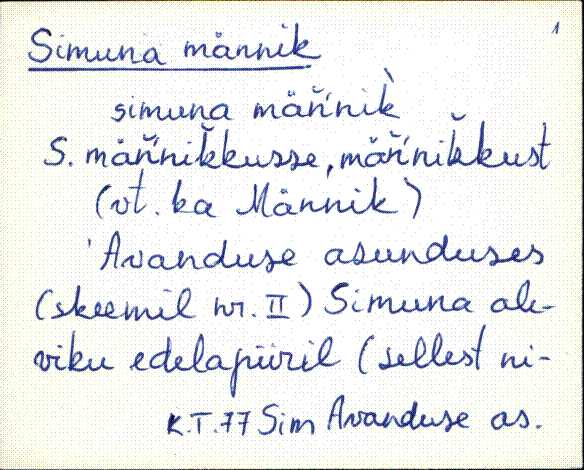 1
Simuna männik
simuna mäň'nik̀
S. mäň'nǐkkusse, mäň'nǐkkust
(vt. ka Männik)
'Avanduse asunduses
(skeemil nr. II) Simuna ale-
viku edelapiiril (sellest ni-
K.T.77 Sim Avanduse as.